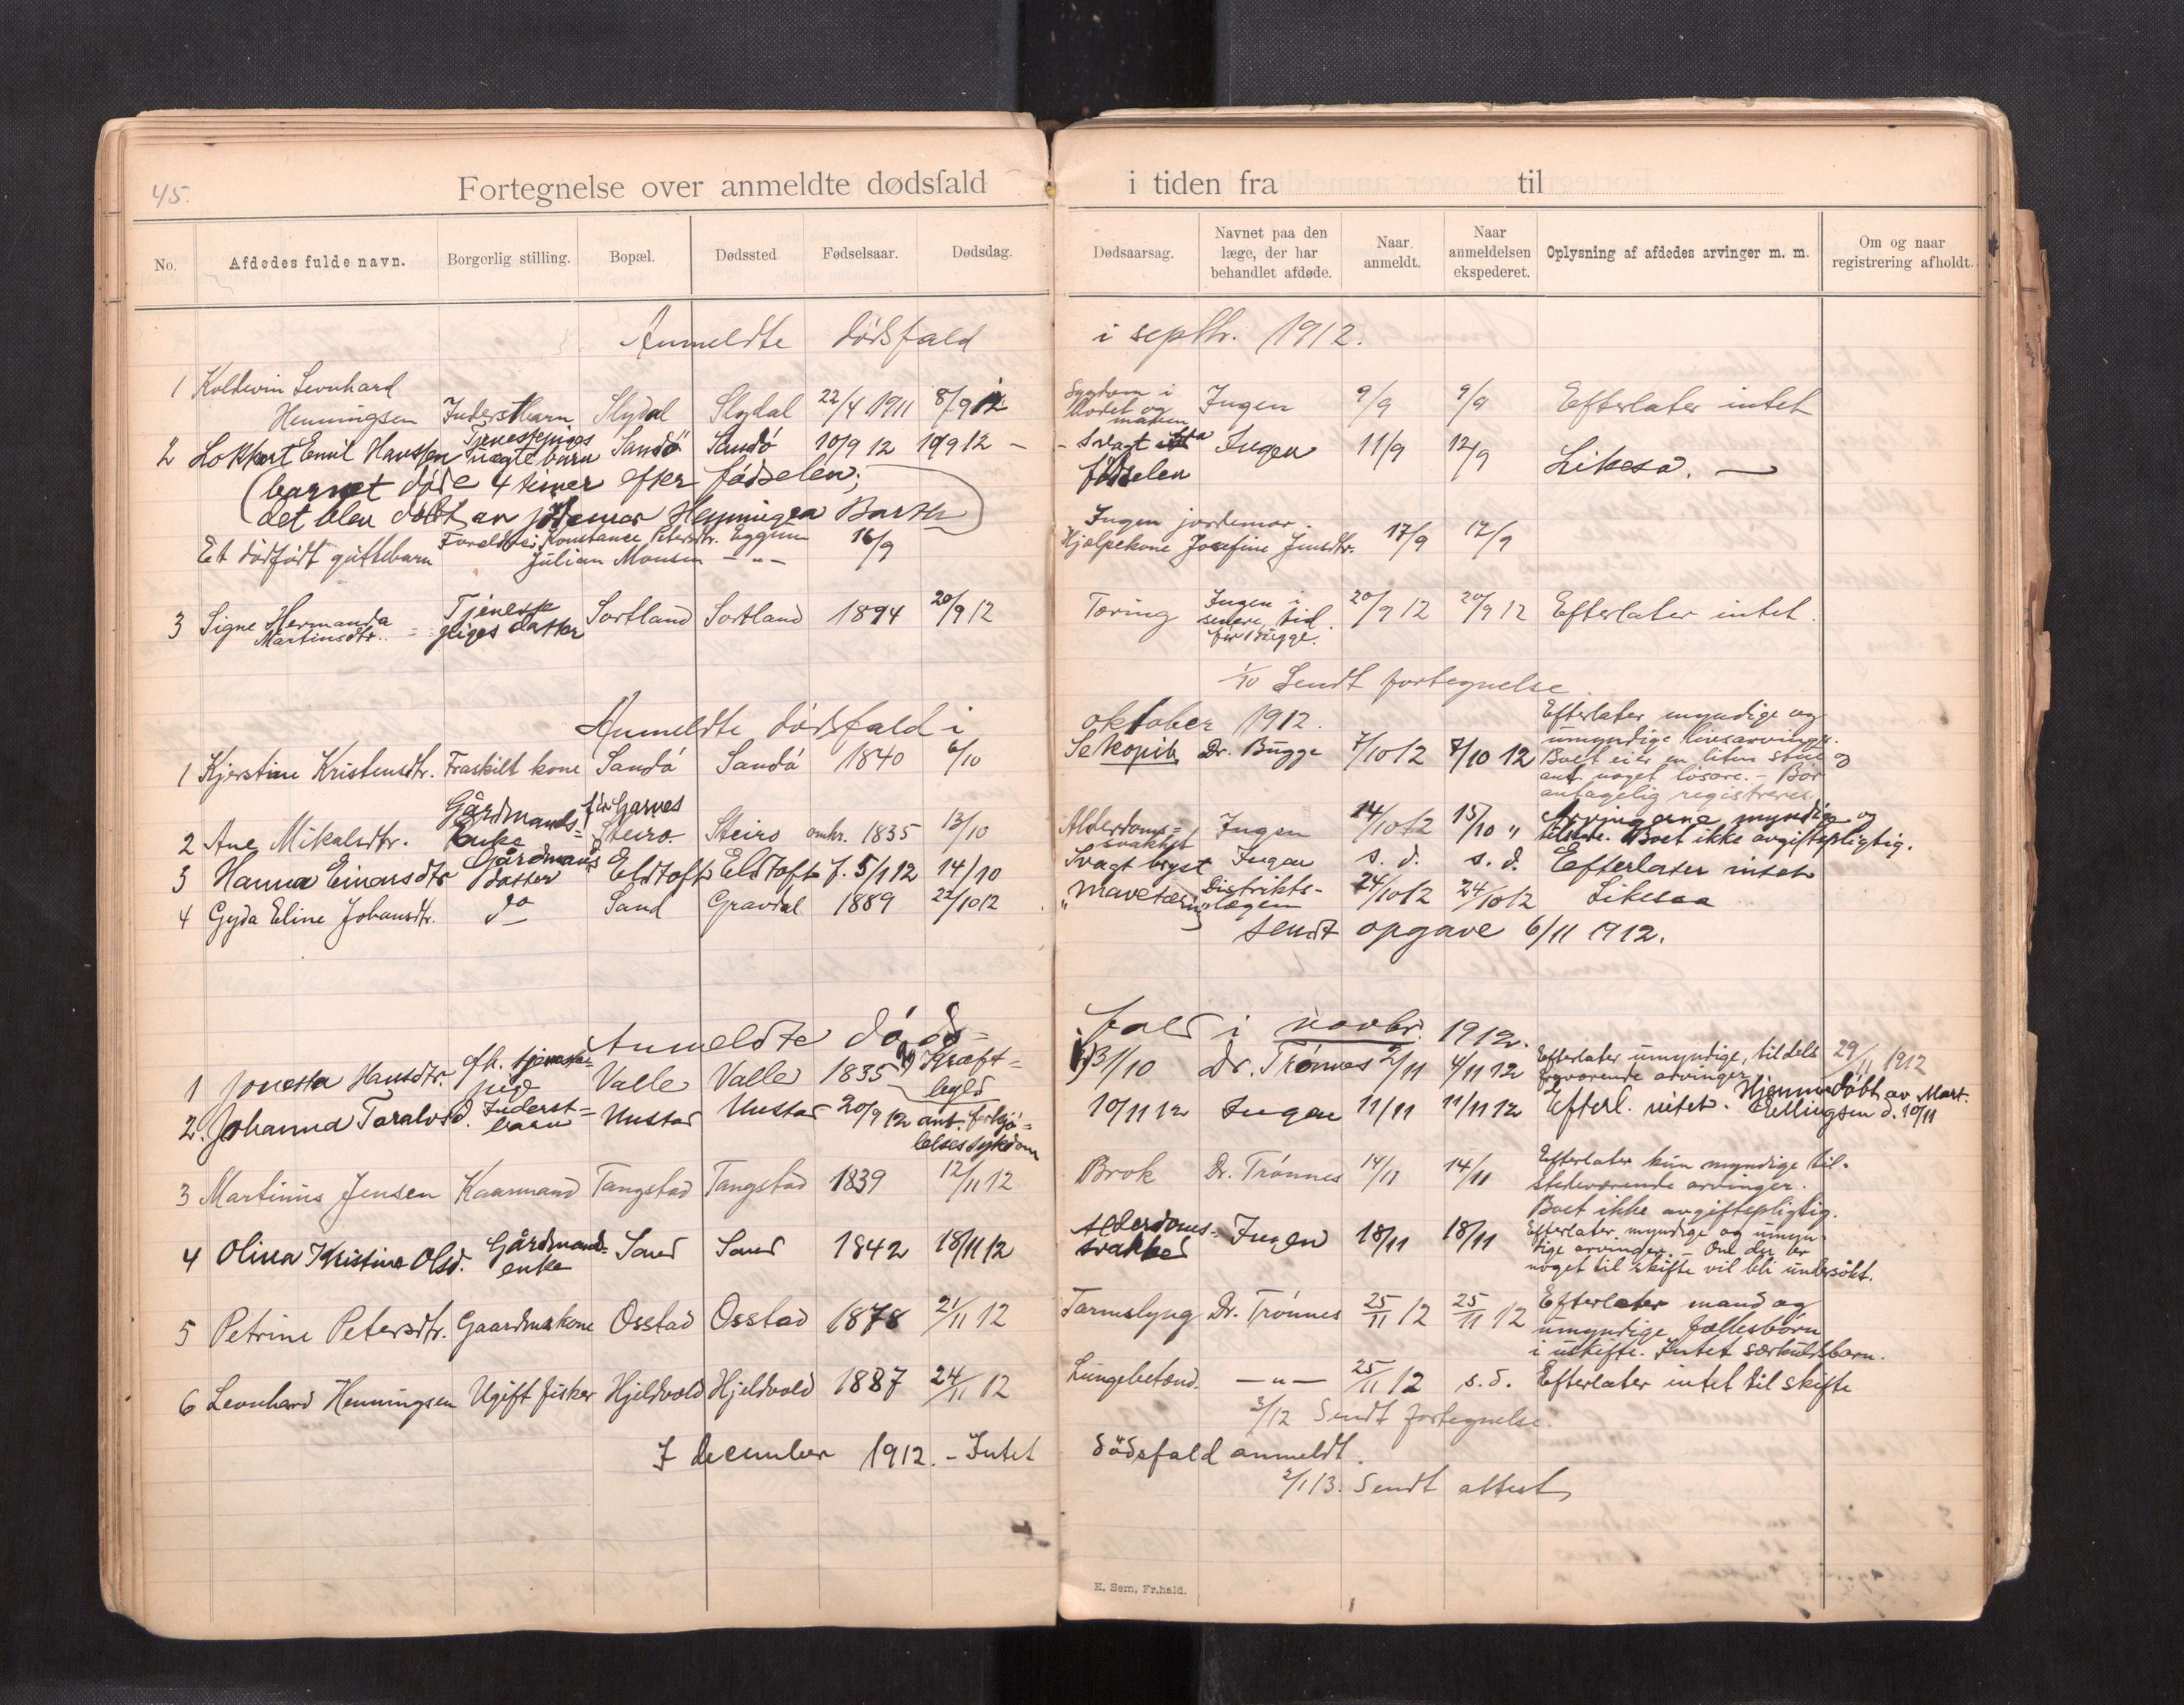 45.
Fortegnelse over anmeldte dødsfald i tiden fra til
No. Afdødes fulde navn. Borgerlig stilling. Bopæl. Dødssted Fødselsaar. Dødsdag. Dødsaarsag. Navnet paa den læge, der har behandlet afdøde. Naar anmeldt. Naar anmeldelsen ekspederet. Oplysning af afdødes arvinger m. m. Om og naar registrering afholdt.
Anmeldte dødsfald i septbr. 1912.
1 Koldevin Leonhard
Henningsen Inderstbarn Slydal Slydal 22/4 1911 8/9 12 Sygdom i blodet og maven Ingen 9/9 9/9 Efterlater intet
2 Lokkert Emil Hanssen Tjenestepiges uægte barn Sandø Sandø 10/9 12 10/9 12 - Svagt fra fødselen Ingen 11/9 12/9 Likesa. —
(barnet døde 4 timer efter fødselen;
det blev døbt av jordemor Henningea Barth)
Et dødfødt guttebarn Foreldre: Konstanse Petersdtr. Eggum 16/9 Ingen jordemor. 17/9 17/9
Julian Monsen — " — Hjælpekone Josefine Jensdtr.
3 Signe Hermanda Martinsdtr. Tjenestepiges datter Sortland Sortland 1894 20/9 12 Tæring Ingen i senere tid. før Bugge. 20/9 12 20/9 12 Efterlater intet.
1/10 Sendt fortegnelse.
Anmeldte dødsfald i oktober 1912.
1 Kjerstine Kristensdtr. Fraskilt kone Sandø Sandø 1840 6/10 Dr. Bugge 7/10 12 7/10 12 Efterlater myndige og
umyndige livsarvinger.
Boet eier en liten stue og
ant. noget løsøre. - Bør
antagelig registreres.
2 Ane Mikalsdtr. Gårdmands= enke Steiro Steiro omkr. 1835 13/10 Alderdoms= svakhet Ingen 14/10 12 15/10 " Arvingerne myndige og
tilstede. Boet ikke avgiftspligtig.
3 Hanna Einarsdtr Gårdmands datter Eldtoft Eldtoft f. 5/1 12 14/10 Svagt bryst Ingen s. d. s. d. Efterlater intet
4 Gyda Eline Johansdtr. do Sand Gravdal 1889 22/10 12 "Mavetæring" Distrikts-lægen 24/10 12 24/10 12 Likesaa
Sendt opgave 6/11 1912.
Anmeldte døds= fald i novbr. 1912.
1 Jonetta Hansdtr. fh. tjeneste= pige Valle Valle 1835 Kræft= byld 31/10 Dr. Trønnes 2/11 4/11 12 Efterlater umyndige, tildels
arvinger. 29/11 1912
2. Johanna Toralvsd. Inderst= barn Unstad Unstad 20/9 12 ant. forkjø= lelsessykdom 10/11 12 Ingen 11/11 11/11 12 Efterl. intet. Hjemmedøbt av Mart.
Ellingsen d. 10/11
3 Martinus Jensen Kaarmand Tangstad Tangstad 1839 12/11 12 Brok Dr. Trønnes 14/11 14/11 Efterlater kun myndige til-
stedeværende arvinger.
Boet ikke avgiftspligtig.
4 Olina Kristine Olsd. Gårdmand= enke Sand Sand 1842 18/11 12 Alderdoms= svakhed Ingen 18/11 18/11 Efterlater myndige og umyn-
dige arvinger. - Om der er
noget til skifte vil bli undersøkt.
5 Petrine Petersdtr. Gaardmskone Osstad Osstad 1878 21/11 12 Tarmslyng Dr. Trønnes 25/11 12 25/11 12 Efterlater mand og
umyndige fællesbørn
i uskifte. Intet særkuldsbarn.
6 Leonhard Henningsen Ugift fisker Hjeldvold Hjeldvold 1887 24/11 12 Lungebetænd. — " — 25/11 12 s. d. Efterlater intet til skifte
3/12 Sendt fortegnelse.
I december 1912. - Intet dödsfald anmeldt.
2/1 13. Sendt attest
E. Sem, Fr.hald.